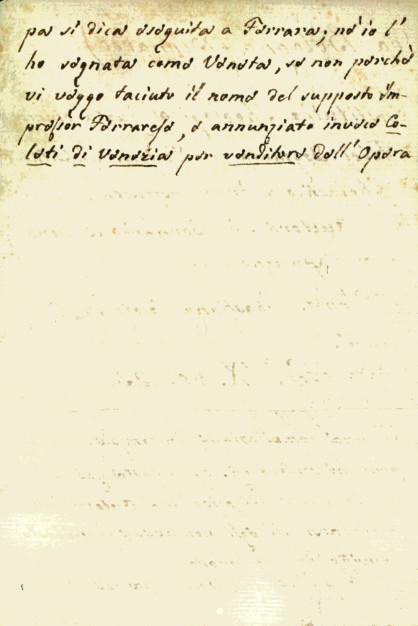 pa si dica eseguita a Ferrara; nè io l'
ho segnata come Veneta, se non perchè
vi veggo taciuto il nome del supposto im-
pressor Ferrarese, e annunziato invece Co-
leti di Venezia per venditore dell'Opera